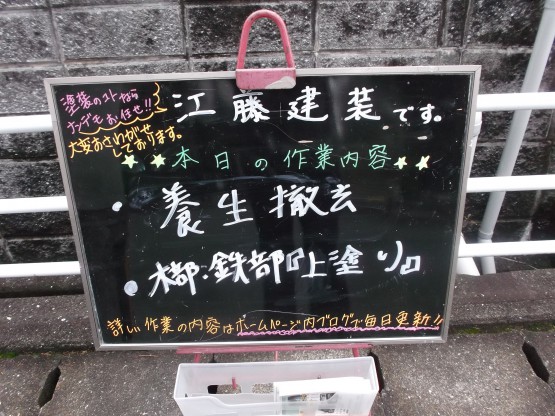 塗装のコトなら
ナンデモお任せ!!
江藤建装です。
大変おさわがせ
しております。
本日の作業内容
・養生撤去
・木部・鉄部『上塗り』
詳しい作業の内容はホームページ内ブログで毎日更新!!